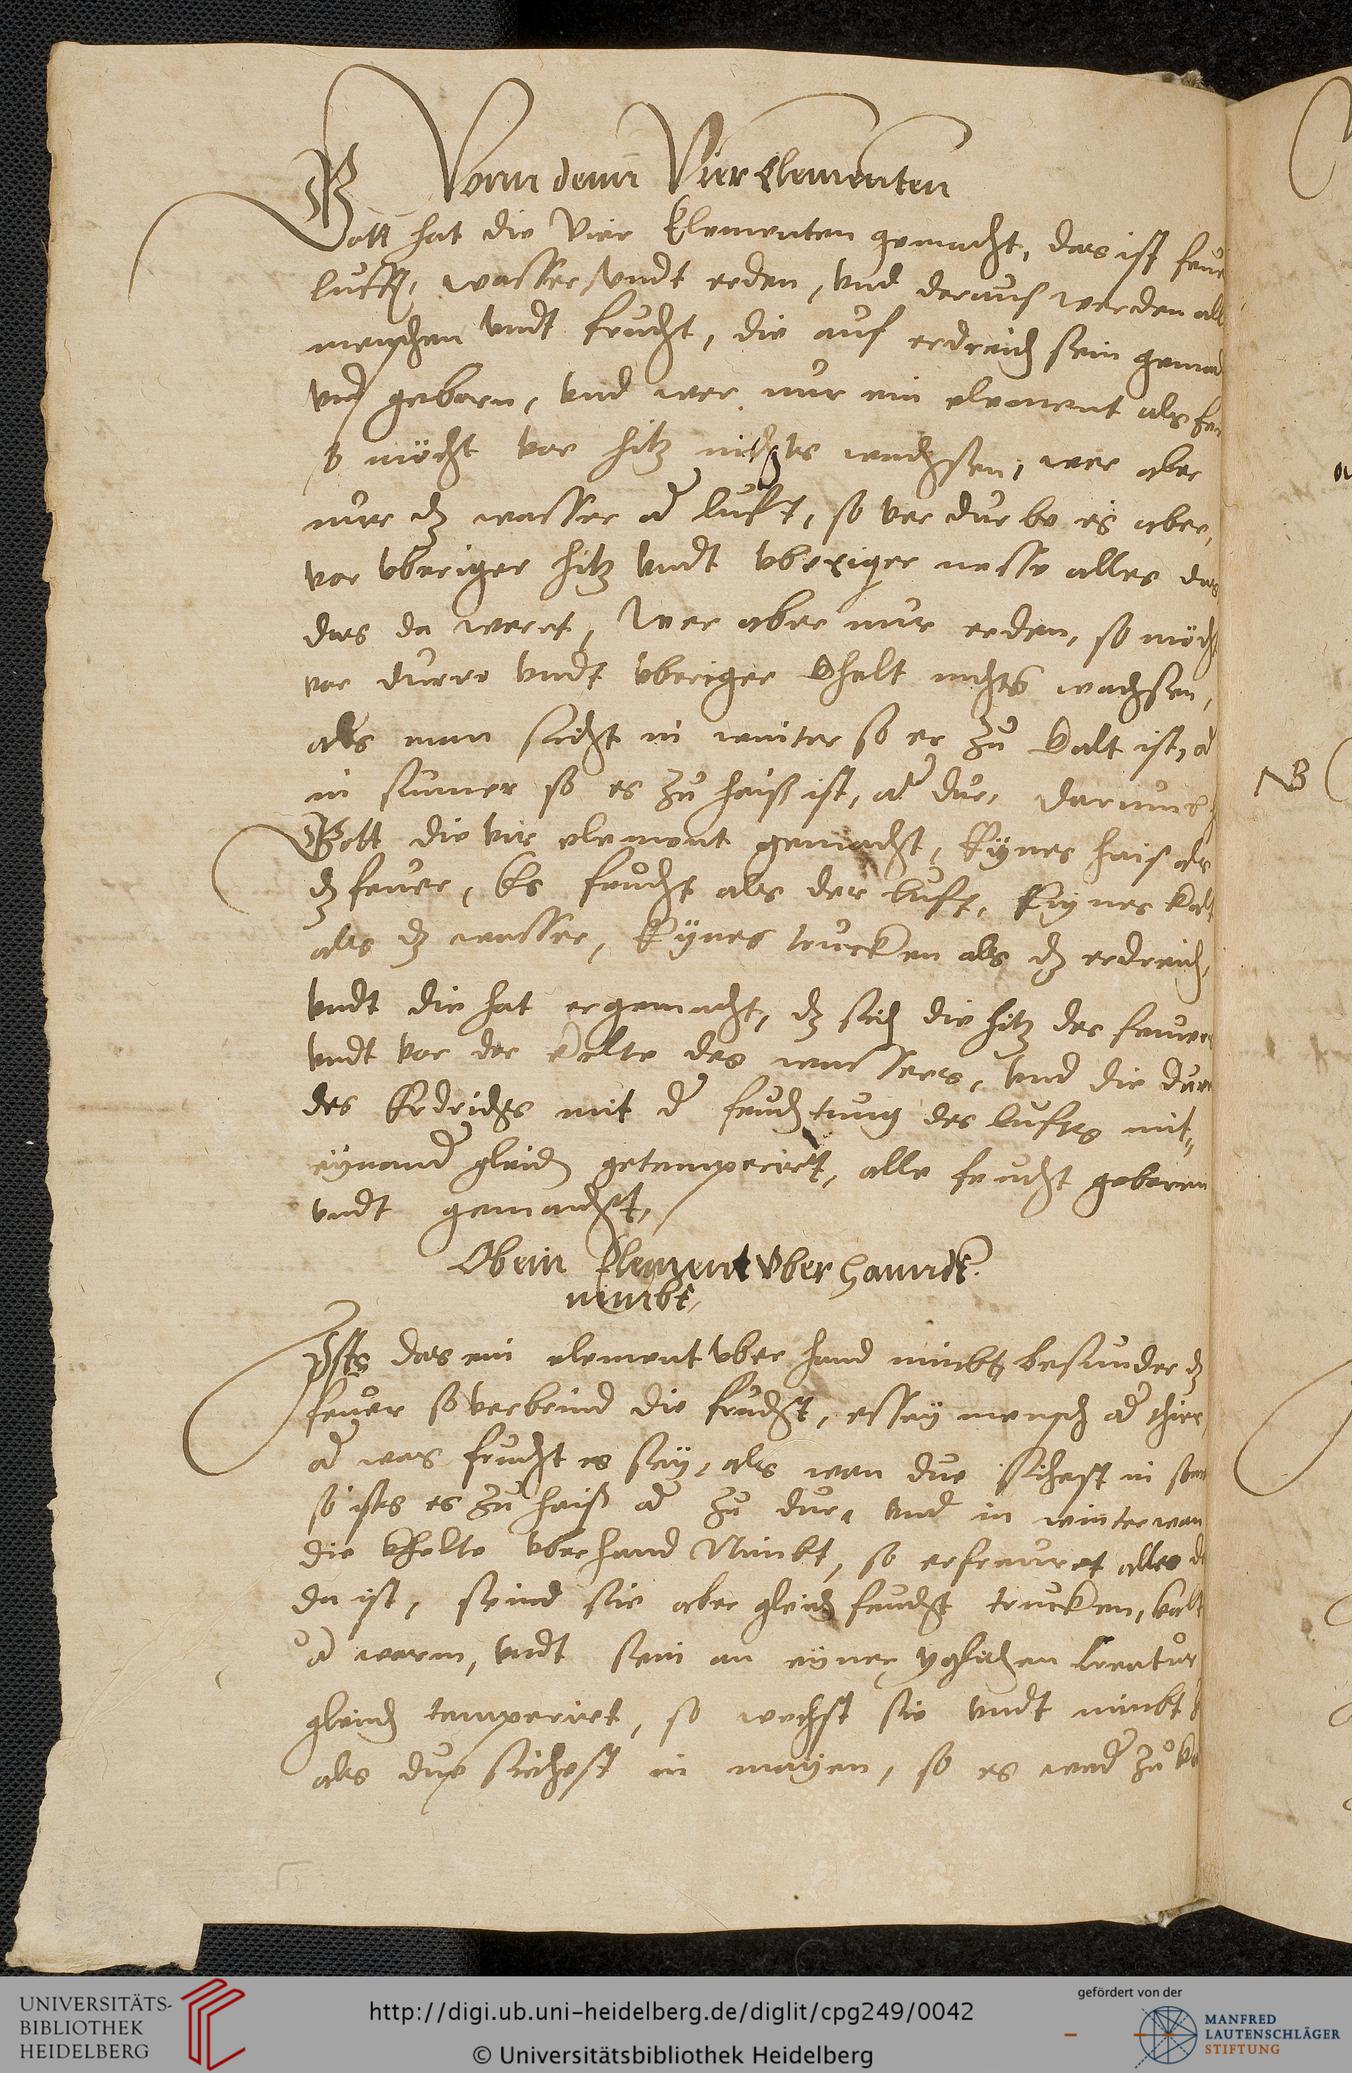 Vonn denn Vier Elementen
Gott hat die Vier Elementen gemacht, das ist feue
lufft, wasser vndt erden, vnd daraus werden all
menschen vndt frucht, die auf erdreich sein gemac
vnd geborn, vnd wer nur ein element als feu
so möcht vor hitz nichts wachsen, wer aber
nur dz wasser od luft, so verdurbe es aber,
vor vberiger hitz vndt vberiger nesse alles das
das da weret, Wer aber nur erden, so möcht
vor durre vndt vberiger khelt nichts wachsen,
als man sicht in winter so er zu kalt ist, od
in sumer so es zu heiß ist, od dur, darumb
Gott die vir element gemacht, Eynes heis als
dz feuer, Es feucht als der luft, Eynes kalt
als dz wasser, Eynes trucken als dz erdreich,
vndt die hat er gemacht, dz sich die hitz des feuers
vndt vor der kelte des wassers, vnd die dure
des Erdrichs mit d feuchtung des lufts mit
eynand gleich getemperirt, alle frucht geboren
vndt gemacht,
Ob ein Element vber hanndt
nimbt,
Ists das ein element vber hand nimbt besunder dz
feuer so verbrind die frucht, es sey mensch od thier,
od was frucht es sey, als wan due sichest in som
so ists es zu heis od zu dur, vnd in winter wan
die khelte vberhand Nimbt, so erfreuret alles d
da ist, seind sie aber gleich feucht trucken, kalt
od warm, vndt sein an eyner yglichen Creatur
gleich temperirt, so wechst sie vndt nimbt
als due sichest in mayen, so es wed zu k
NB
UNIVERSITÄTS-
BIBLIOTHEK
HEIDELBERG
http://digi.ub.uni-heidelberg.de/diglit/cpg249/0042
© Universitätsbibliothek Heidelberg
gefördert von der
MANFRED
LAUTENSCHLÄGER
STIFTUNG